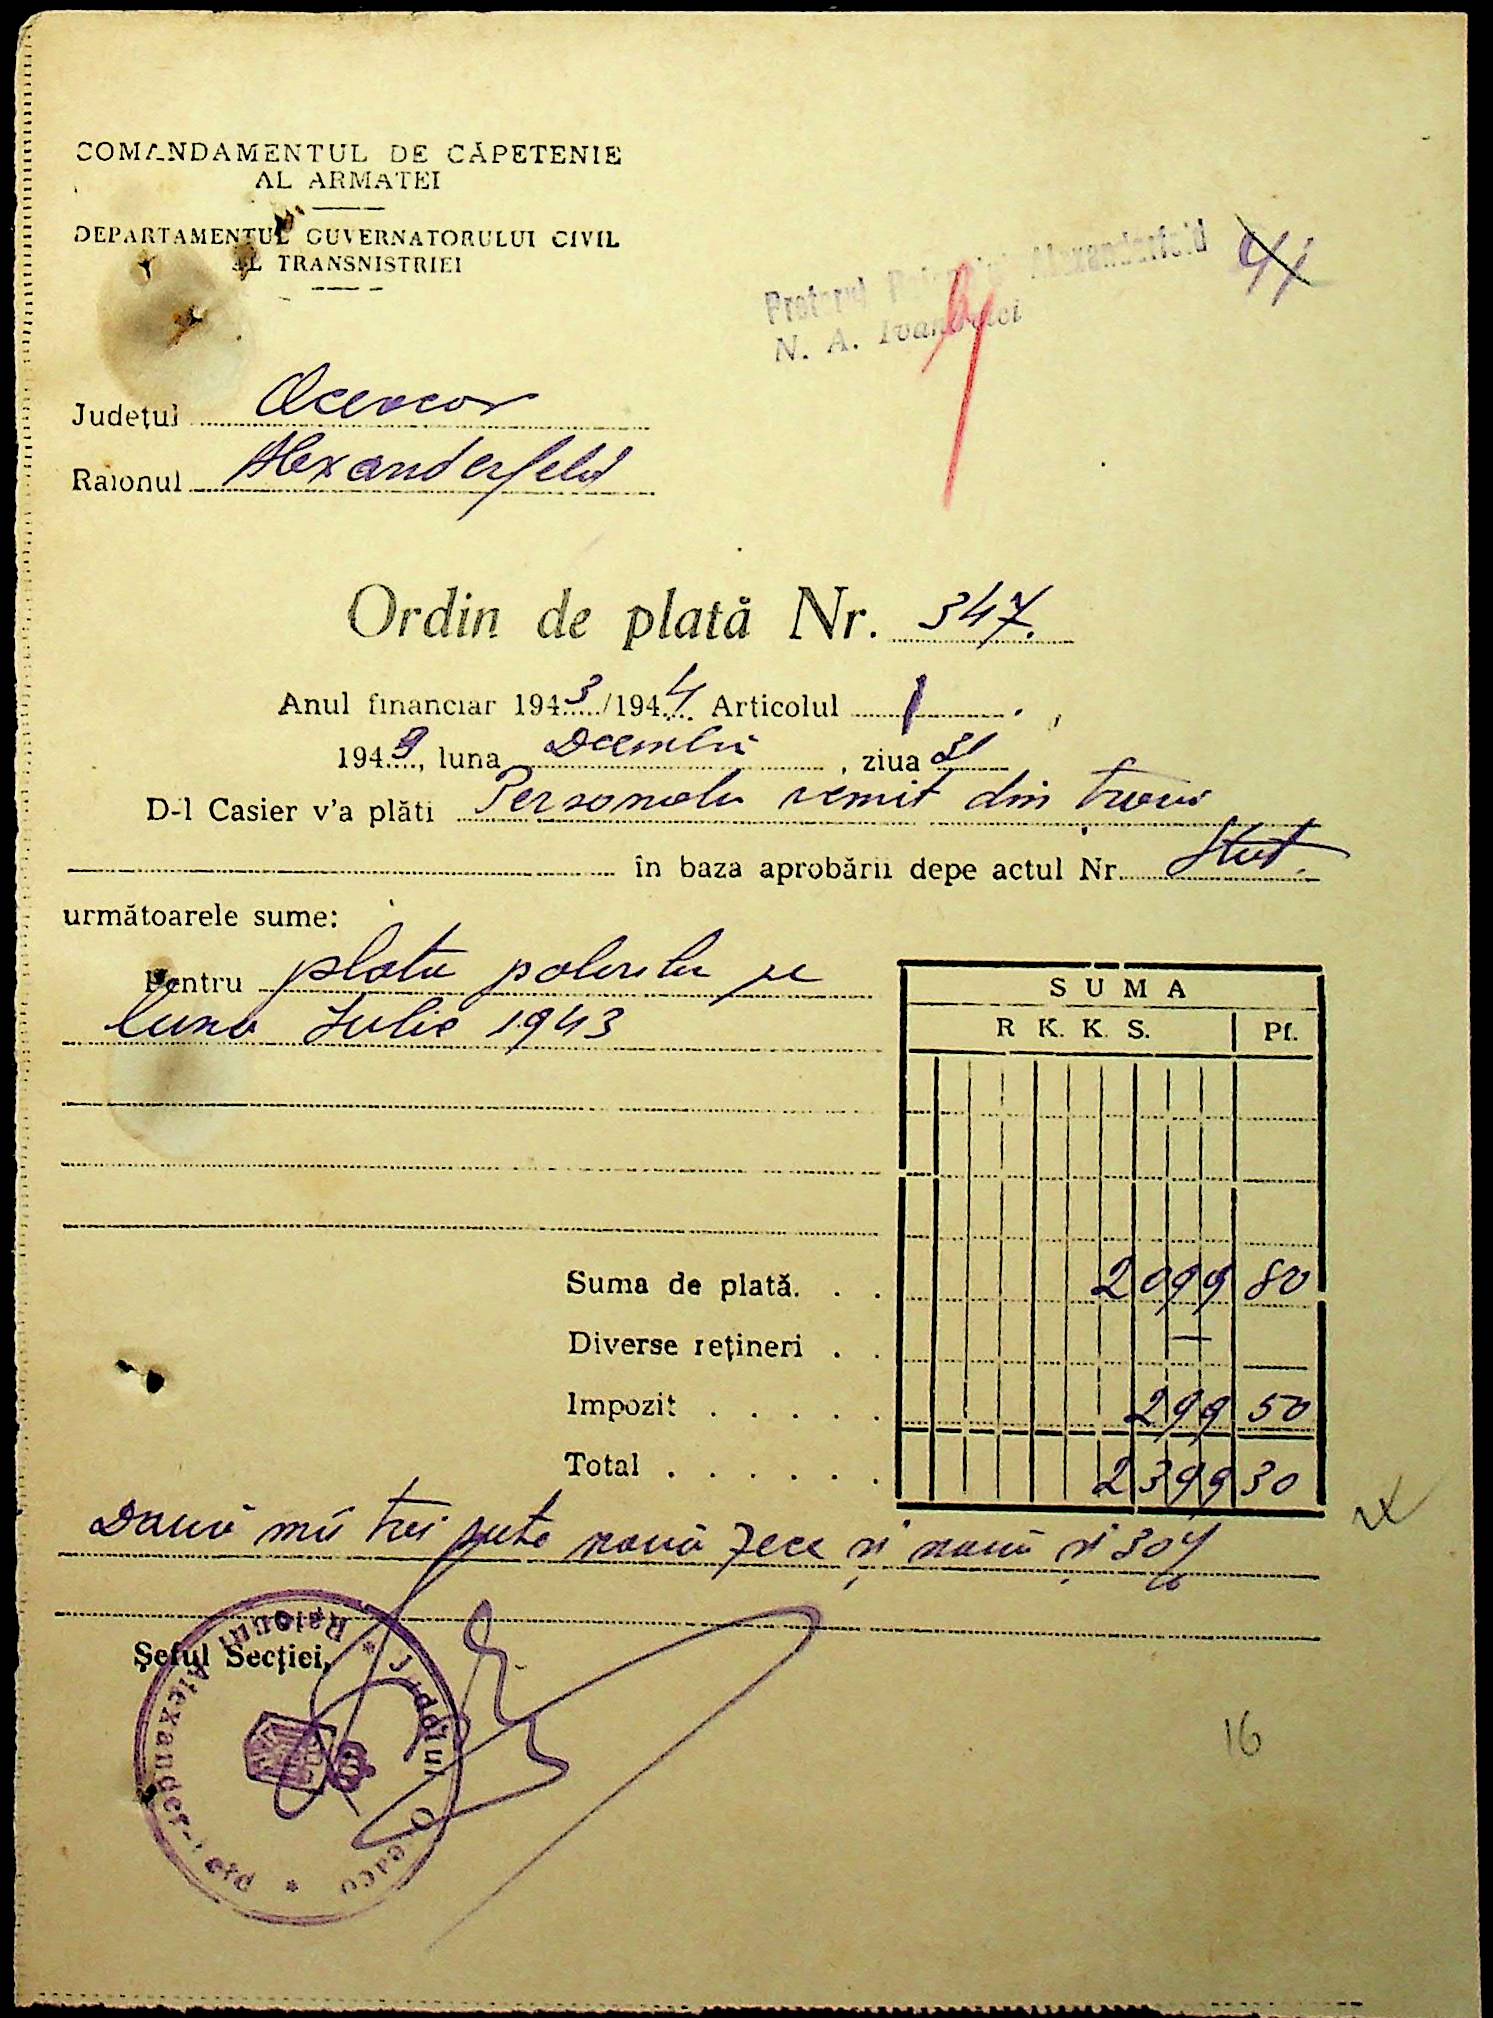 COMANDAMENTUL DE CĂPETENIE
AL ARMATEI
DEPARTAMENTUL GUVERNATORULUI CIVIL
AL TRANSNISTRIEI
Pretorul Raionului Alexanderfeld
N. A. Ivan
41
Județul Oceacov
Raionul Alexanderfeld
Ordin de plată Nr. 347.
Anul financiar 1943/1944 Articolul 1
1943, luna Decembrie, ziua 31
D-l Casier v'a plăti Personalul venit din
în baza aprobării depe actul Nr. Stat.
următoarele sume:
Pentru plata salariilor pe
luna Iulie 1943
SUMA
R. K. K. S. Pf.
Suma de plată. . . 2099 80
Diverse rețineri . . — —
Impozit . . . . . 299 50
Total . . . . . . 2399 30
Două mii trei sute nouă zece și nouă și 30
Șeful Secției,
Județul Oceacov * Raionul Alexander-feld *
16